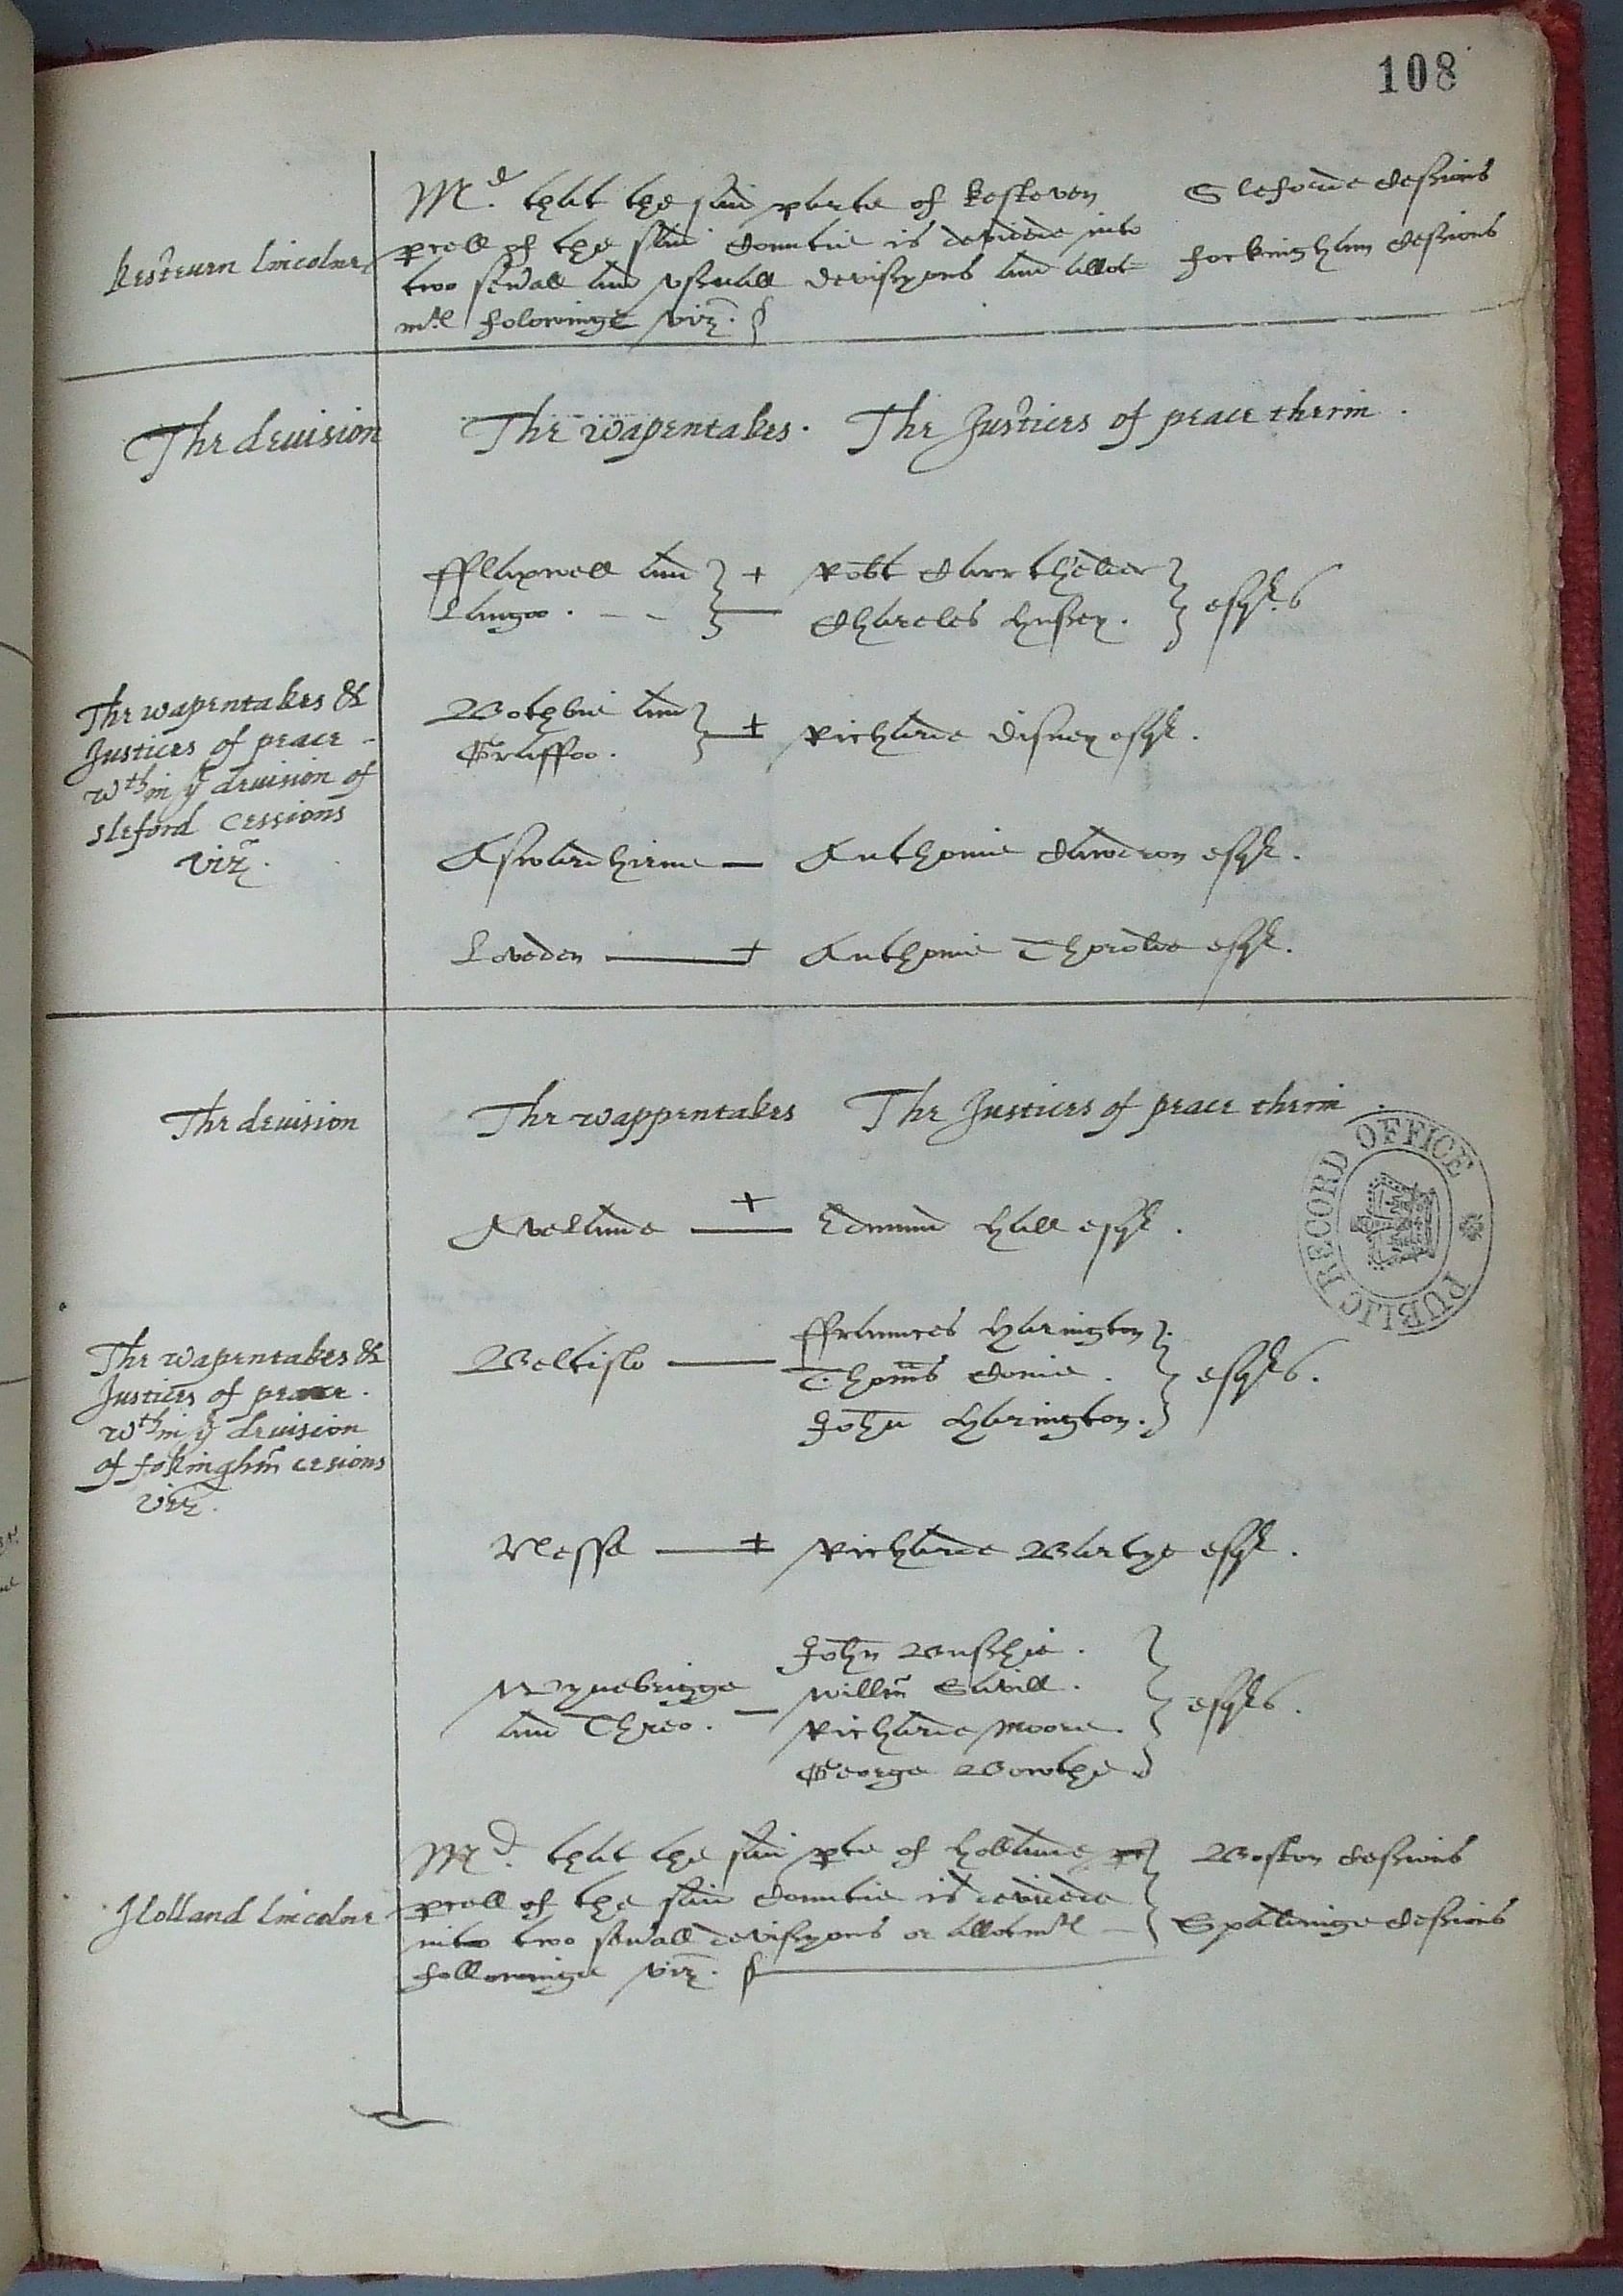 108
Kesteuen Lincolne
Md. that the said parte of Kesteven
pcell of the said Countie is devided into
two seuall and vsuall devisyons and allot
mte folowinge viz.
Sleforde Cessions
Fockingham Cessions
The deuision
The wapentakes. The Justices of peace therin.
The wapentakes &
Justices of peace
wthin ye deuision of
sleford Cessions
viz.
Fflaxwell and + Robt Carr thelder
Langoo. Charcles Hussey. esqrs
Bothbie and
Graffoo. + Richarde Disney esqr.
Aswardhirne Anthonie Cawdron esqr.
Loveden + Anthonie Thorolde esqr.
The deuision
The wappentakes The Justices of peace therin.
The wapentakes &
Justices of peace.
wthin ye deuision
of fokinghm cesions
viz.
Avelande + Edmund Hall esqr.
Beltislo
Ffraunces Harington
Thoms Conie. esqrs.
John Harington.
Nesse + Richarde Bartye esqr.
Wynebrigge
and Threo.
John Busshie.
Willm Savill.
Richarde Moore. esqrs.
George Bowthe
Holland Lincolne
Md. that the said pte of Hollande
pcell of the said Countie is devided
into two seuall devisyons or allotmte
followinge viz.
Boston Cessions
Spaldinge Cessions
PUBLIC RECORD OFFICE